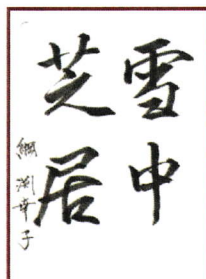 雪中
芝居
綱渕幸子